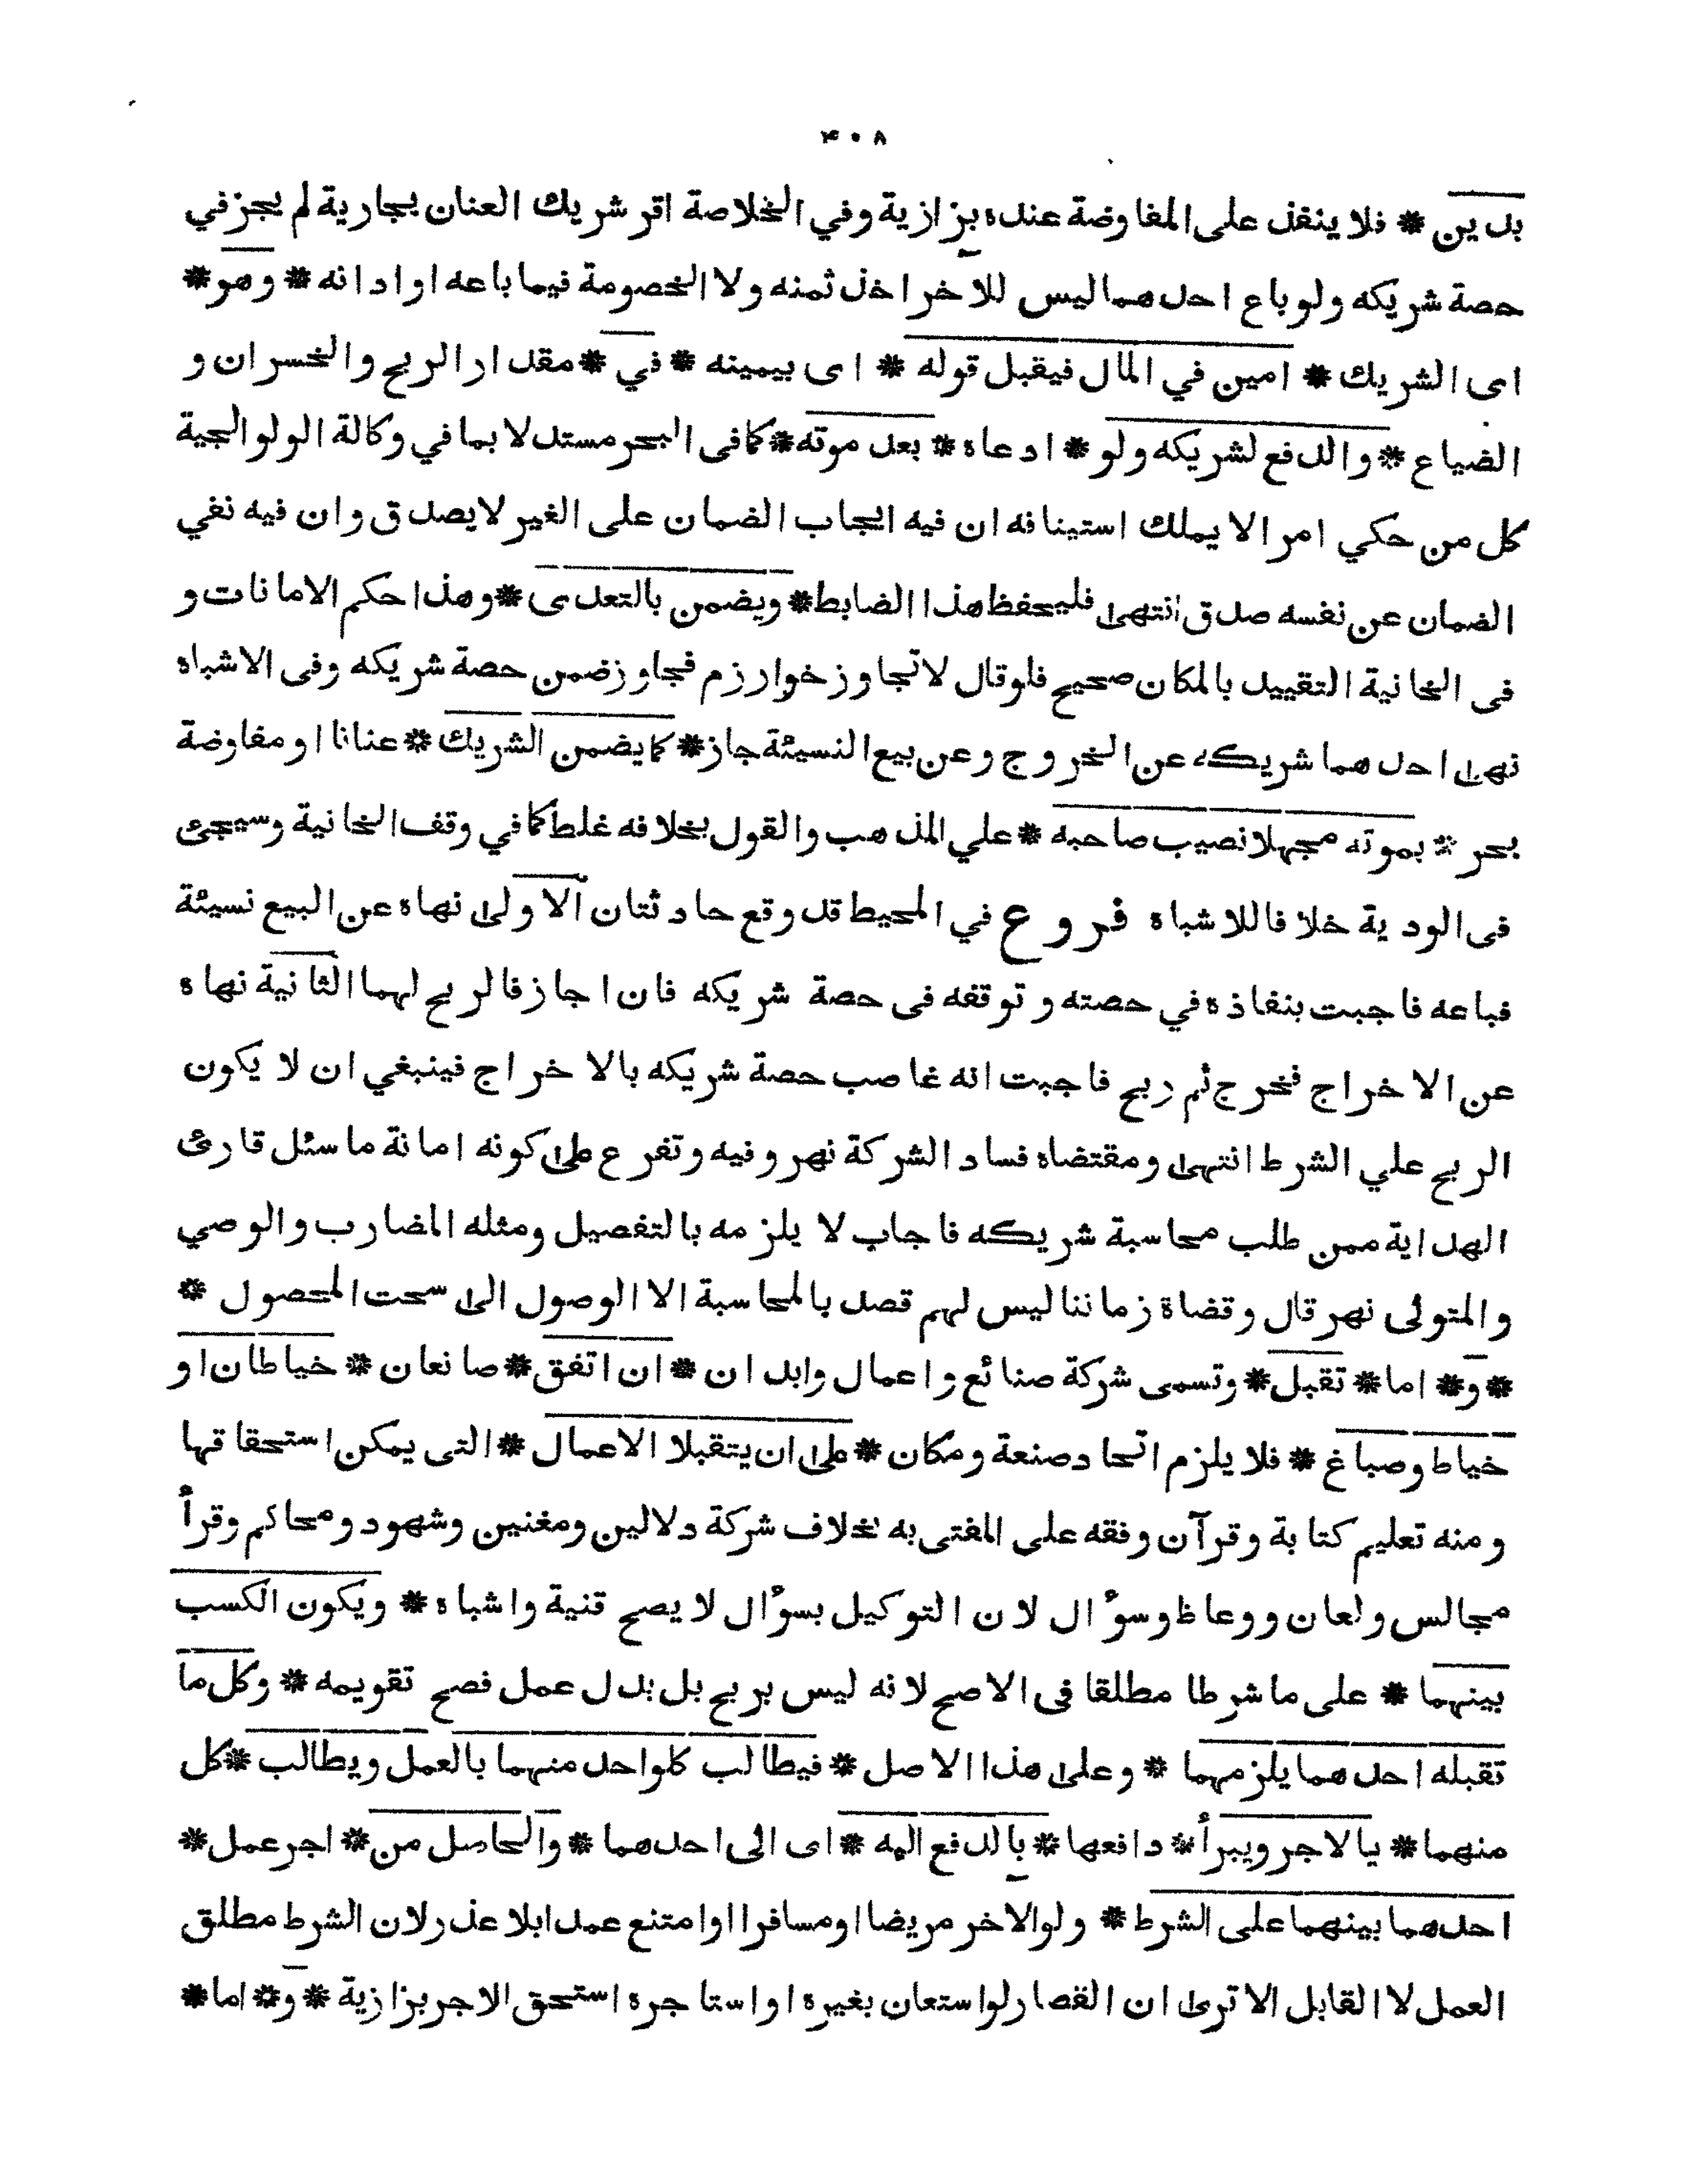 ۴۰۸
بدين * فلا ينفذ على المفاوضة عنده بزازية وفي الخلاصة اقر شريك العنان بجارية لم يجز في
حصة شريكه ولو باع احدهما ليس للاخر اخذ ثمنه ولا الخصومة فيما باعه او ادانه * وهو *
اى الشريك * امين في المال فيقبل قوله * اى بيمينه * في * مقدار الربح والخسران و
الضياع * والدفع لشريكه ولو * ادعاه * بعد موته * كما فى البحر مستدلا بما في وكالة الولوالجية
كل من حكي امرا لا يملك استينافه ان فيه ايجاب الضمان على الغير لا يصدق وان فيه نفي
الضمان عن نفسه صدق انتهى فليحفظ هذا الضابط * ويضمن بالتعدى * وهذا حكم الامانات و
فى الخانية التقييد بالمكان صحيح فلو قال لا تجاوز خوارزم فجاوز ضمن حصة شريكه وفى الاشباه
نهى احدهما شريكه عن الخروج وعن بيع النسيئة جاز * كما يضمن الشريك * عنانا او مفاوضة
بحر * بموته مجهلا نصيب صاحبه * علي المذهب والقول بخلافه غلط كما في وقف الخانية وسيجئ
فى الودية خلافا للاشباه فروع في المحيط قد وقع حادثتان الاولى نهاه عن البيع نسيئة
فباعه فاجبت بنفاذه في حصته وتوقفه فى حصة شريكه فان اجاز فالربح لهما الثانية نهاه
عن الاخراج فخرج ثم ربح فاجبت انه غاصب حصة شريكه بالاخراج فينبغي ان لا يكون
الربح علي الشرط انتهى ومقتضاه فساد الشركة نهر وفيه وتفرع على كونه امانة ما سئل قارئ
الهداية ممن طلب محاسبة شريكه فاجاب لا يلزمه بالتفصيل ومثله المضارب والوصي
والمتولى نهر قال وقضاة زماننا ليس لهم قصد بالمحاسبة الا الوصول الى سحت المحصول *
* و * اما * تقبل * وتسمى شركة صنائع واعمال وابدان * ان اتفق * صانعان * خياطان او
خياط وصباغ * فلا يلزم اتحاد صنعة ومكان * على ان يتقبلا الاعمال * التى يمكن استحقاقها
ومنه تعليم كتابة وقرآن وفقه على المفتى به بخلاف شركة دلالين ومغنين وشهود ومحاكم وقرأ
مجالس ولعان ووعاظ وسوٴال لان التوكيل بسوٴال لا يصح قنية واشباه * ويكون الكسب
بينهما * على ما شرطا مطلقا فى الاصح لانه ليس بربح بل بدل عمل فصح تقويمه * وكل ما
تقبله احدهما يلزمهما * وعلى هذا الاصل * فيطالب كلواحد منهما بالعمل ويطالب * كل
منهما * يالاجر ويبرأ * دافعها * بالدفع اليه * اى الى احدهما * والحاصل من * اجر عمل *
احدهما بينهما على الشرط * ولو الاخر مريضا او مسافرا او امتنع عمدا بلا عذر لان الشرط مطلق
العمل لا القابل الا ترى ان القصار لو استعان بغيره او استاجره استحق الاجر بزازية * و * اما *